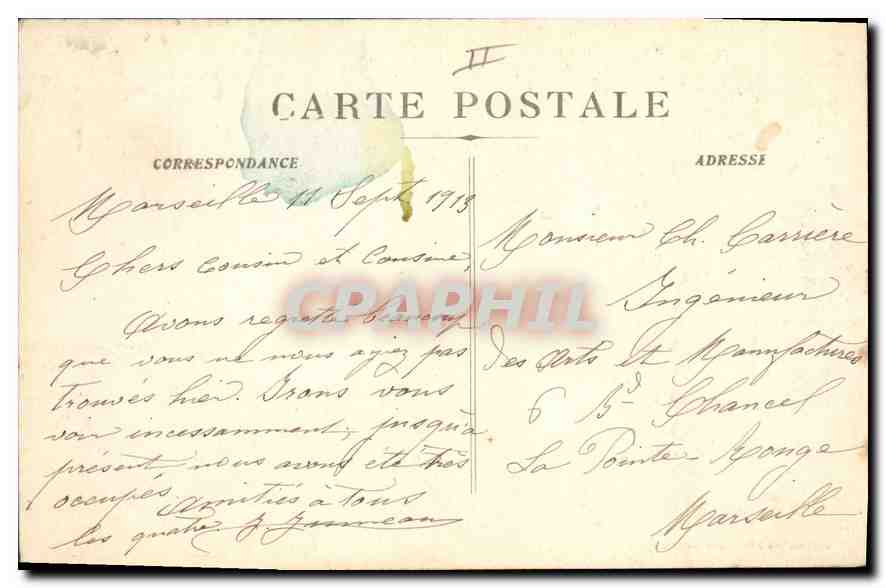 II
CARTE POSTALE
CORRESPONDANCE
ADRESSE
Marseille 11 Sept 1913
Chers Cousin et Cousine,
Avons regretté beaucoup
que vous ne nous ayiez pas
trouvés hier. Irons vous
voir incessamment, jusqu'à
présent nous avons été très
occupés
Amitiés à tous
les quatre
Monsieur Ch. Carrière
Ingénieur
des Arts et Manufactures
6 Bd Chancel
La Pointe Rouge
Marseille
CPAPHIL